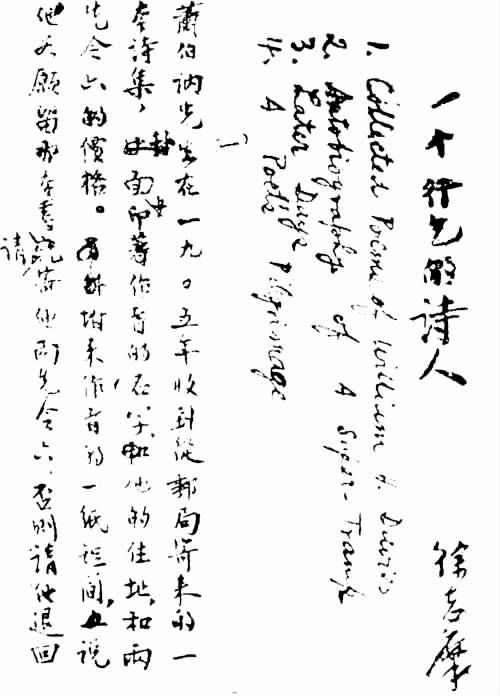 一个行乞的詩人
徐志摩
1. Collected Poems of William H. Davies
2. Autobiography of A Super-Tramp
3. Later Days
4. A Poet's Pilgrimage
蕭伯訥先生在一九〇五年收到從郵局寄來的一
本詩集，封面印著作者的名字，和他的住址，和兩
先令六的價格。附來作者的一紙短簡，說
他如願留那本書，請寄他兩先令六，否則請他退回